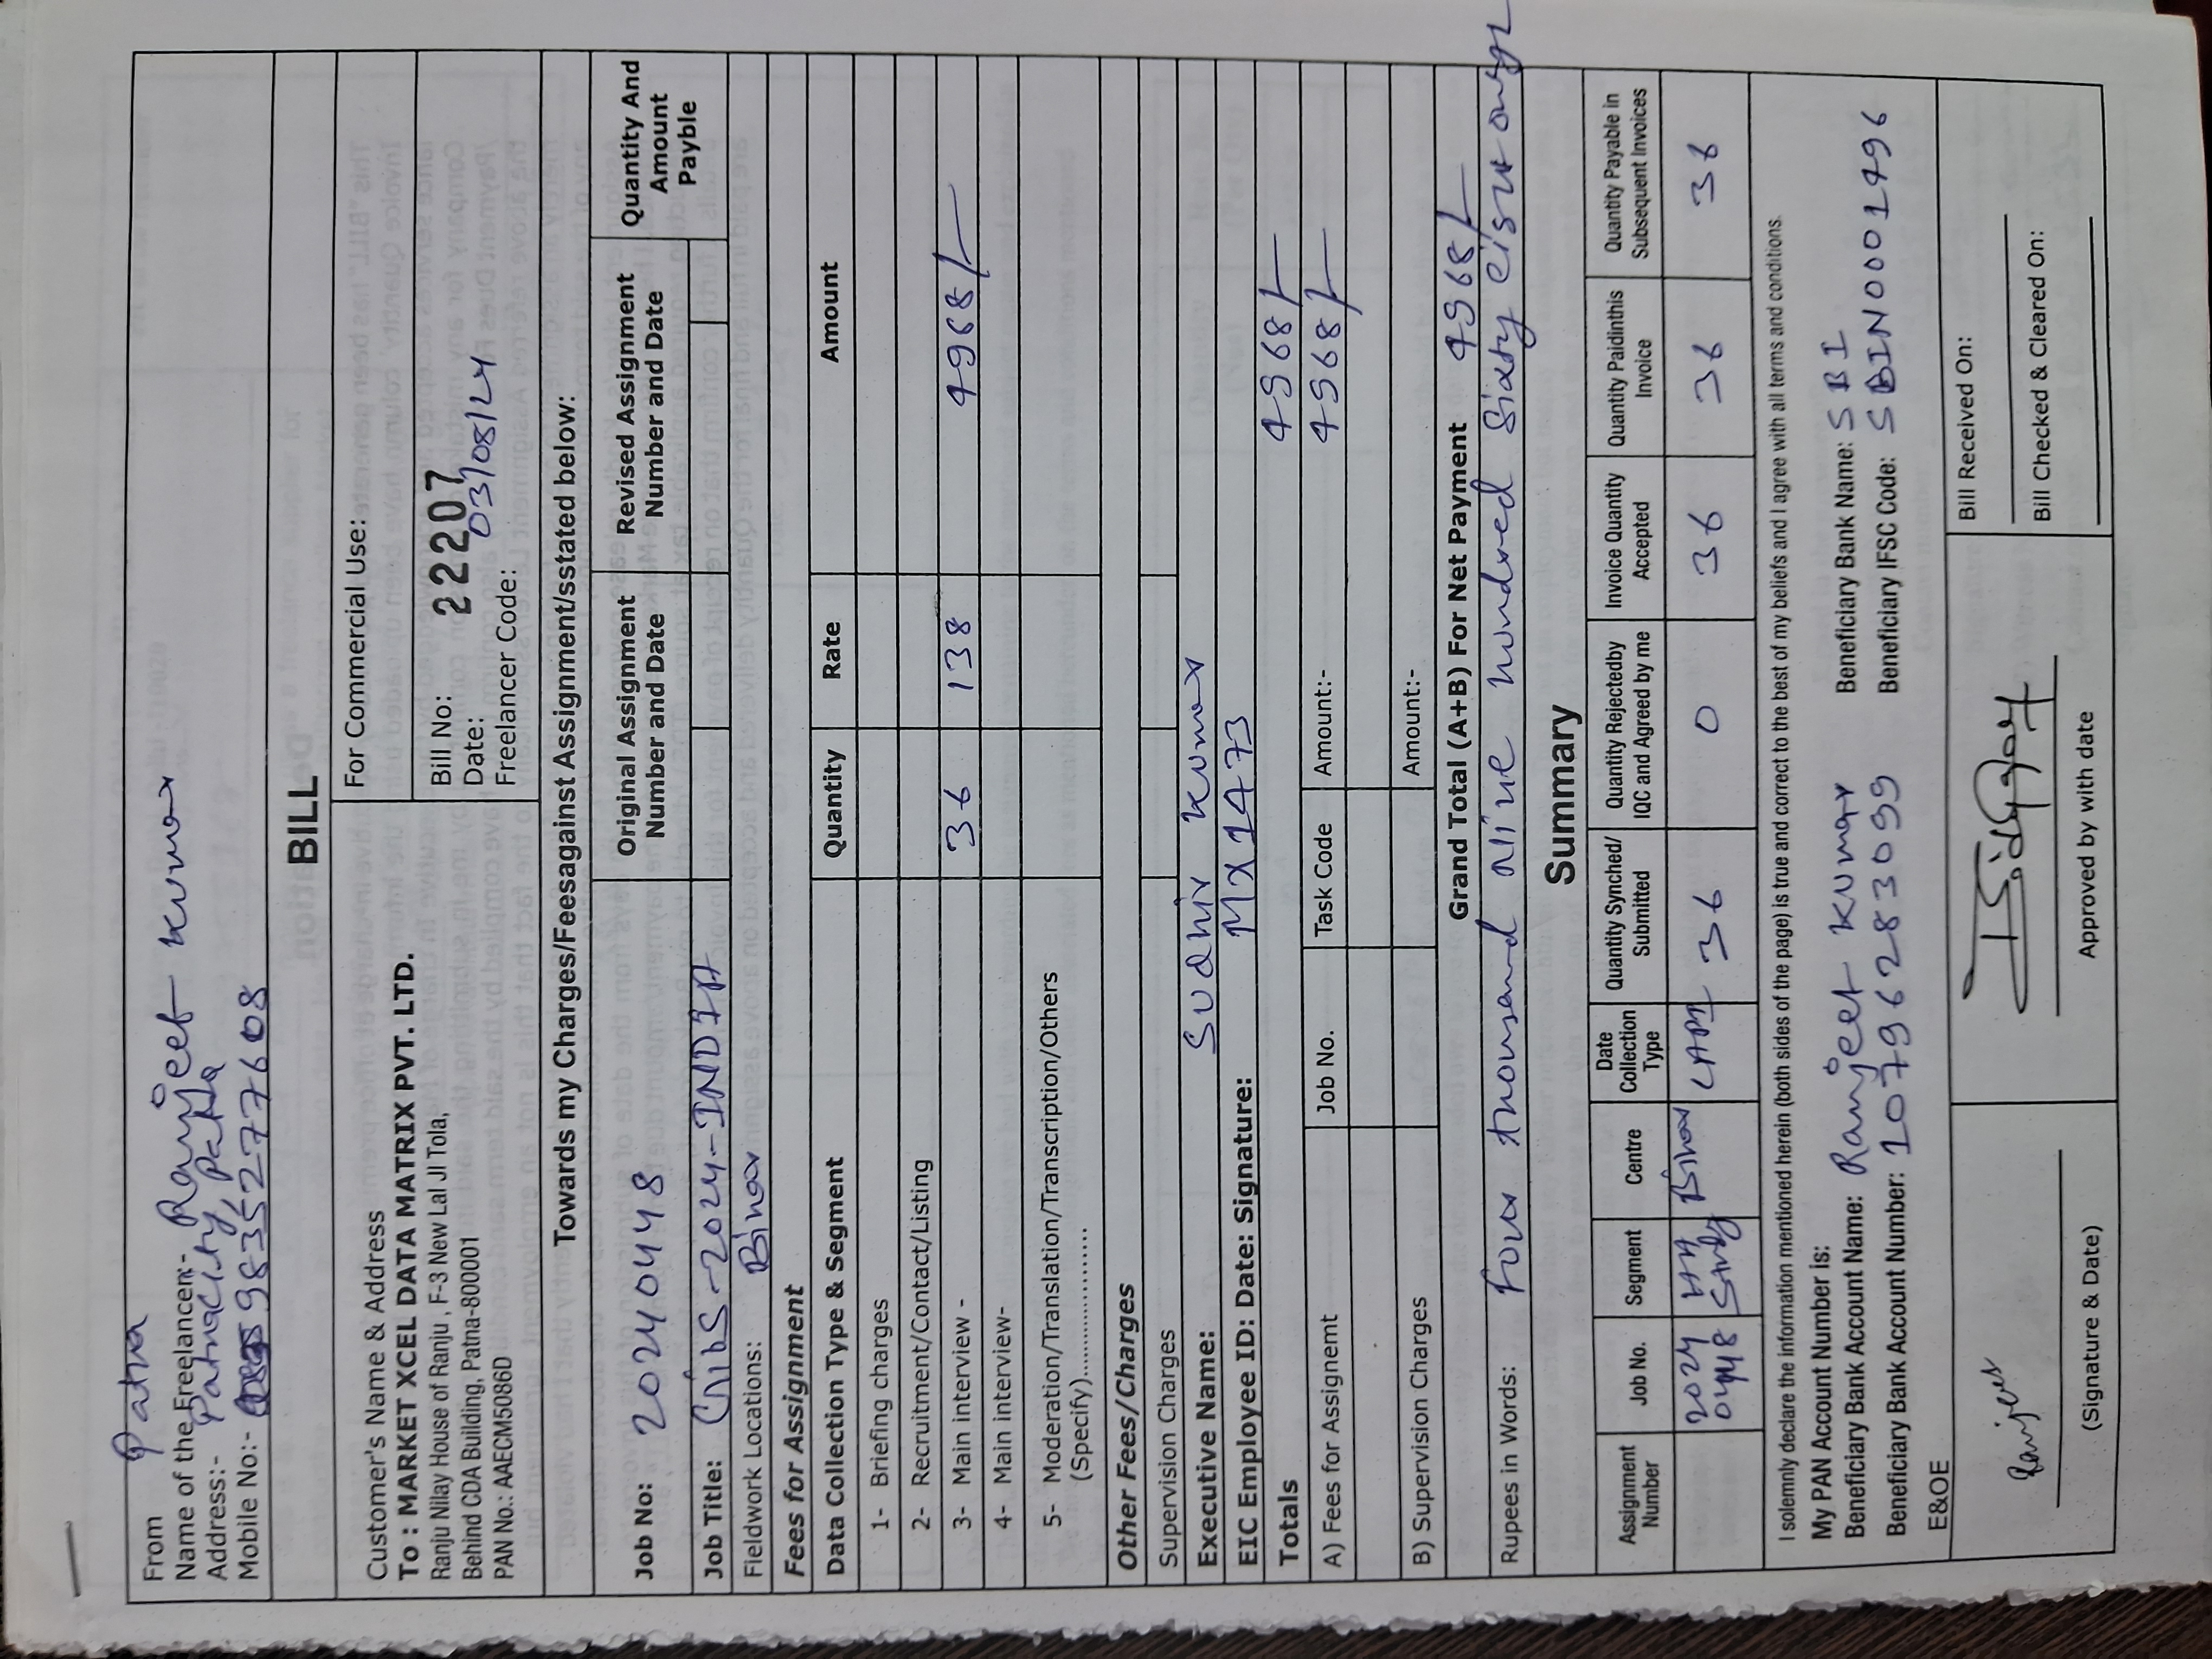 Patna
From
Name of the Freelancer:- Ranjeet Kumar
Address:- Patnacity, Patna
Mobile No:- 9835277608
BILL
Customer's Name & Address
To : MARKET XCEL DATA MATRIX PVT. LTD.
Ranju Nilay House of Ranju , F-3 New Lal JI Tola,
Behind CDA Building, Patna-800001
PAN No.: AAECM5086D
For Commercial Use:
Bill No: 22207
Date: 03/08/24
Freelancer Code:
Towards my Charges/Feesagainst Assignment/sstated below:
Job No: 20240448
Original Assignment Number and Date
Revised Assignment Number and Date
Quantity And Amount Payble
Job Title: CNBS-2024-INDIA
Fieldwork Locations: Bihar
Fees for Assignment
Data Collection Type & Segment Quantity Rate Amount
1- Briefing charges
2- Recruitment/Contact/Listing
3- Main interview - 36 138 4968/-
4- Main interview-
5- Moderation/Translation/Transcription/Others
(Specify)..................
Other Fees/Charges
Supervision Charges
Executive Name: Sudhir Kumar
EIC Employee ID: Date: Signature: MX1473
Totals 4968/-
A) Fees for Assignemt Job No. Task Code Amount:- 4968/-
B) Supervision Charges Amount:-
Grand Total (A+B) For Net Payment 4968/-
Rupees in Words: Four thousand Nine hundred Sixty eight only
Summary
Assignment Number Job No. Segment Centre Date Collection Type Quantity Synched/ Submitted Quantity Rejectedby IQC and Agreed by me Invoice Quantity Accepted Quantity Paidinthis Invoice Quantity Payable in Subsequent Invoices
20240448 HH Study Bihar CAPI 36 0 36 36 36
I solemnly declare the information mentioned herein (both sides of the page) is true and correct to the best of my beliefs and I agree with all terms and conditions.
My PAN Account Number is:
Beneficiary Bank Account Name: Ranjeet Kumar Beneficiary Bank Name: SBI
Beneficiary Bank Account Number: 10796283099 Beneficiary IFSC Code: SBIN0001496
E&OE
Ranjeet
(Signature & Date)
Approved by with date
Bill Received On:
Bill Checked & Cleared On: